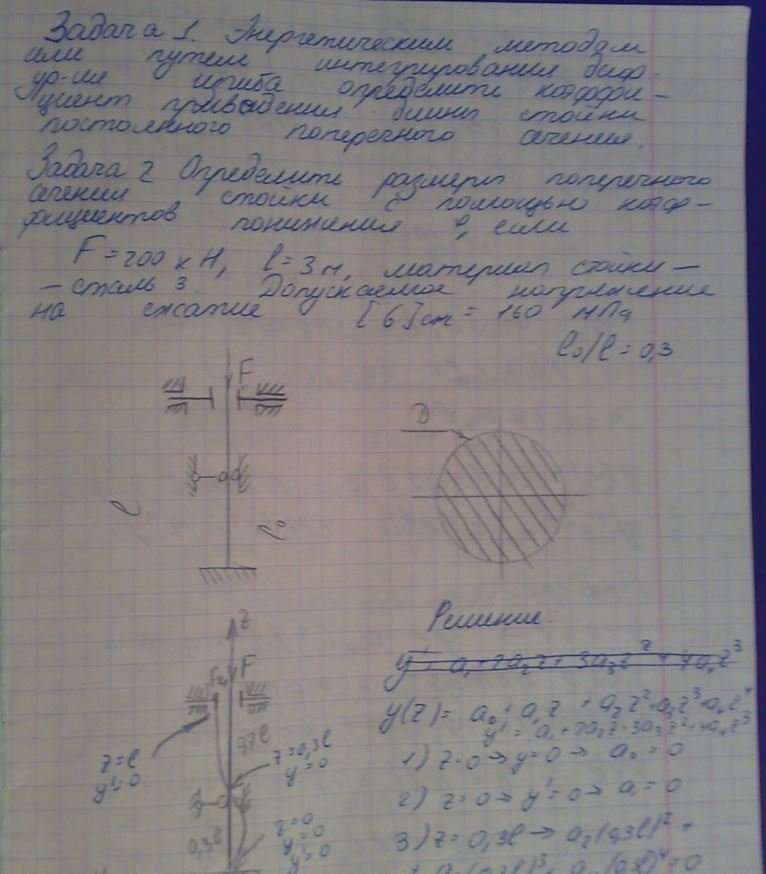 Задача 1. Энергетическим методом
или путем интегрирования диф.
ур-ия изгиба определить коэффи-
циент приведения длины стойки
постоянного поперечного сечения.
Задача 2 Определить размеры поперечного
сечения стойки с помощью коэф-
фициентов понижения φ, если
F = 200 кН, l = 3 м, материал стойки -
- сталь 3. Допускаемое напряжение
на сжатие [σ]сж = 160 МПа
l₀/l = 0,3
F
D
l
l₀
Решение.
z
F
y' = a₁ + 2a₂z + 3a₃z² + 4a₄z³
y(z) = a₀ + a₁z + a₂z² + a₃z³ + a₄z⁴
y' = a₁ + 2a₂z + 3a₃z² + 4a₄z³
0,7l
z = l
y' = 0
z = 0,3l
y = 0
1) z = 0 → y = 0 → a₀ = 0
2) z = 0 → y' = 0 → a₁ = 0
0,3l
z = 0
y = 0
y' = 0
3) z = 0,3l → a₂(0,3l)² +
+ a₃(0,3l)³ + a₄(0,3l)⁴ = 0